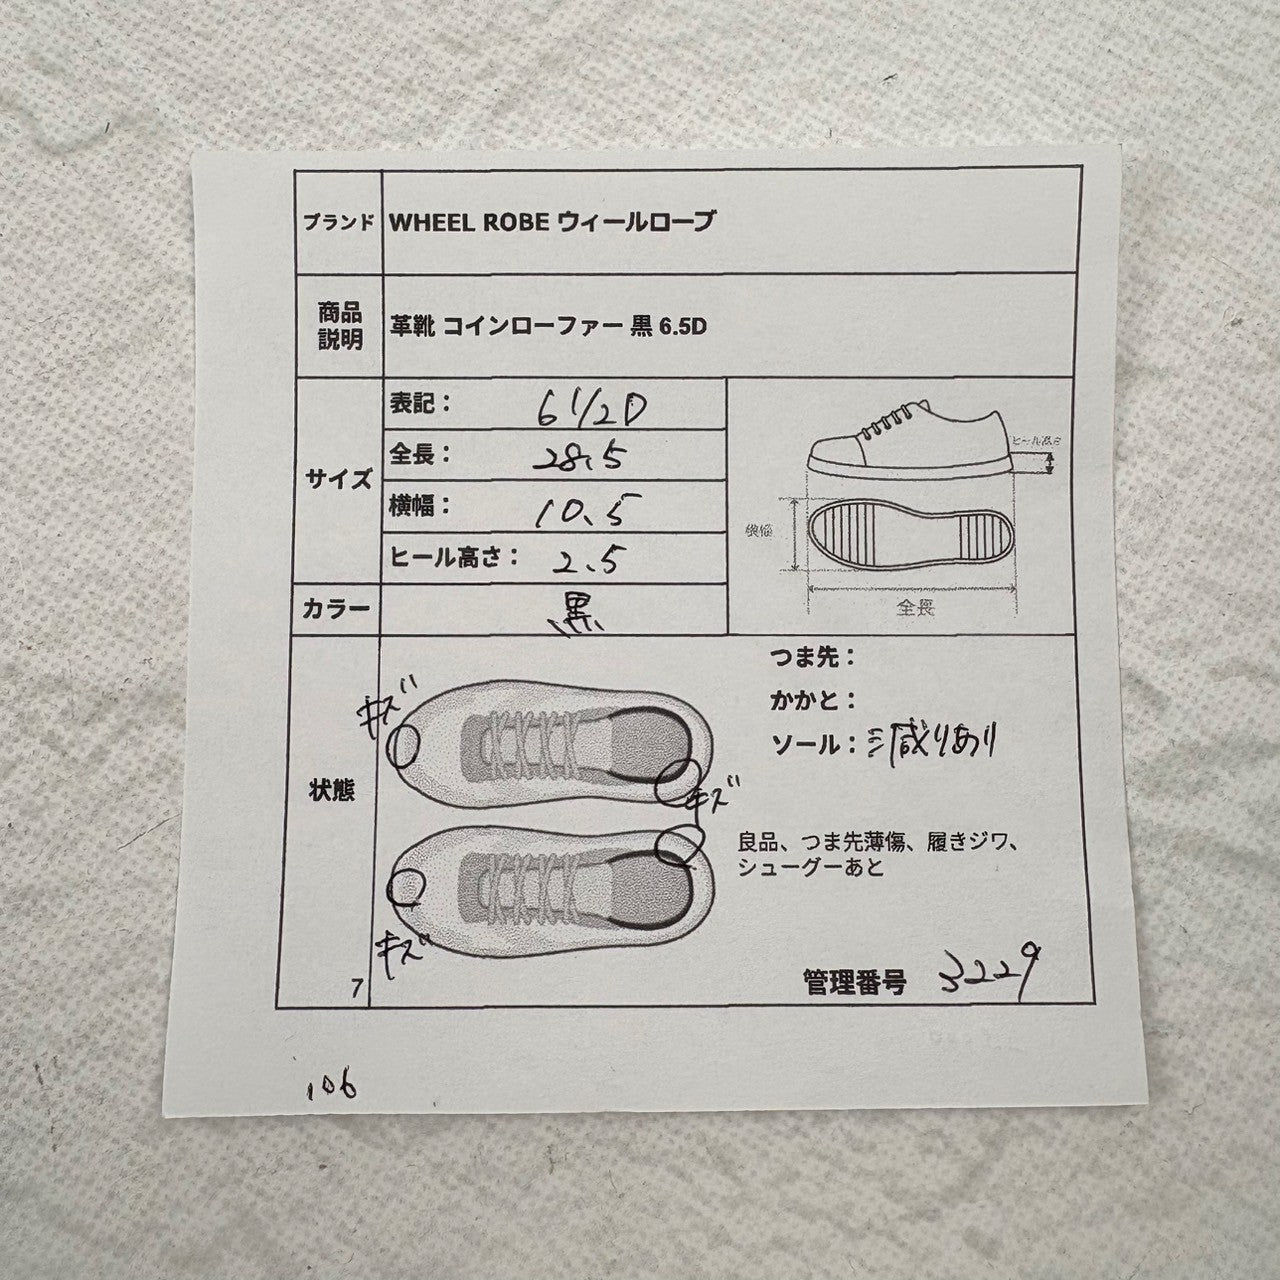 ブランド
WHEEL ROBE ウィールローブ
商品
説明
革靴 コインローファー 黒 6.5D
サイズ
表記： 6 1/2 D
全長： 28.5
横幅： 10.5
ヒール高さ： 2.5
ヒール高さ
横幅
全長
カラー
黒
状態
キズ
キズ
キズ
つま先：
かかと：
ソール： 減りあり
良品、つま先薄傷、履きジワ、
シューグーあと
7
管理番号 3229
106